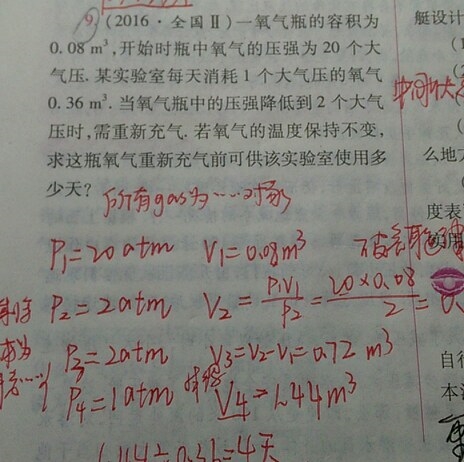 9. (2016·全国Ⅱ)一氧气瓶的容积为
0.08 m³,开始时瓶中氧气的压强为20个大
气压.某实验室每天消耗1个大气压的氧气
0.36 m³.当氧气瓶中的压强降低到2个大气
压时,需重新充气.若氧气的温度保持不变,
求这瓶氧气重新充气前可供该实验室使用多
少天?
所有gas为……对象
P₁=20atm V₁=0.08m³
P₂=2atm V₂=P₁V₁/P₂=20×0.08/2=0.
P₃=2atm V₃=V₂-V₁=0.72 m³
P₄=1atm V₄=1.44m³
1.44÷0.36=4天
艇设计
(1
(2
么地方
度表
自行
本法